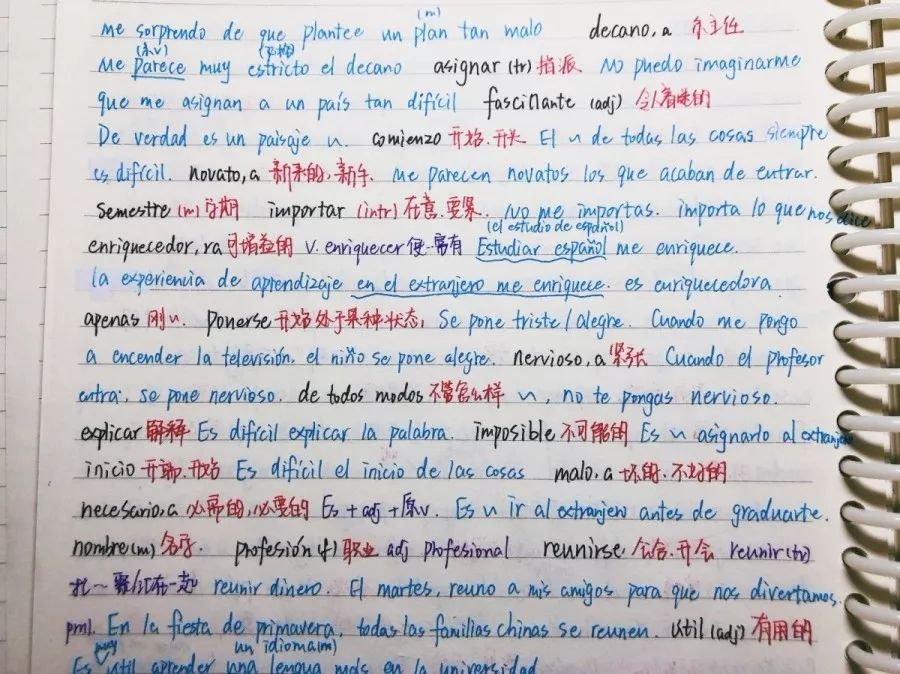 (m)
me sorprendo de que plantee un plan tan malo decano,a 系主任
Me parece muy estricto el decano asignar (tr) 指派 No puedo imaginarme
que me asignan a un país tan difícil fascinante (adj) 令人着迷的
De verdad es un paisaje ~. comienzo 开始.开头 El ~ de todas las cosas siempre
es difícil. novato,a 新来的,新手. Me parecen novatos los que acaban de entrar.
semestre (m) 学期 importar (intr) 在意.要紧. No me importas. importa lo que nos dice
(el estudio de español)
enriquecedor, ra 可增益的 v. enriquecer 使…富有 Estudiar español me enriquece.
la experiencia de aprendizaje en el extranjero me enriquece. es enriquecedora
apenas 刚~. ponerse 开始处于某种状态, Se pone triste/alegre. Cuando me pongo
a encender la televisión. el niño se pone alegre. nervioso,a 紧张 Cuando el profesor
entra, se pone nervioso. de todos modos 不管怎么样 ~, no te pongas nervioso.
explicar 解释 Es difícil explicar la palabra. imposible 不可能的 Es ~ asignarlo al extranjero
inicio 开端.开始 Es difícil el inicio de las cosas malo,a 坏的.不好的
necesario,a 必需的,必要的 Es + adj + 原v. Es ~ ir al extranjero antes de graduarte.
nombre(m) 名字. profesión (f) 职业 adj profesional reunirse 公会.开会 reunir(tr)
把~聚(汇)在一起 reunir dinero. El martes, reuno a mis amigos para que nos divertamos.
prnl. En la fiesta de primavera, todas las familias chinas se reunen. útil (adj) 有用的
muy un idioma(m)
Es útil aprender una lengua más en la universidad